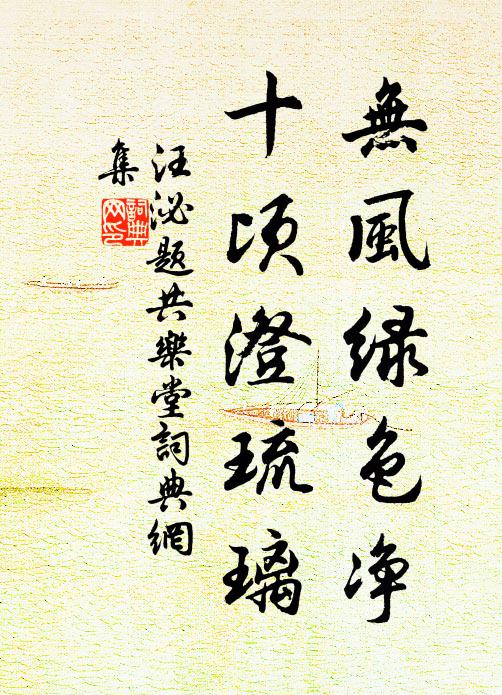 無風綠色净
十頃澄琉璃
汪泌題共樂堂詞典網
集
詞典
网印